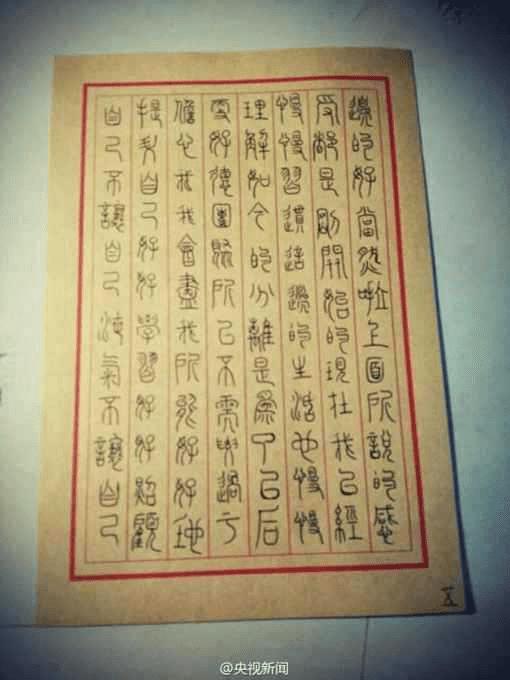 邊的好當然啦上面所說的感
受都是剛開始的現在我已經
慢慢習慣這邊的生活也慢慢
理解如今的分離是為了以后
更好德團聚所以不需要過于
擔心我我會盡我所能好好地
提升自己好好學習好好照顧
自己不讓自己氣不讓自己
五
@央视新闻